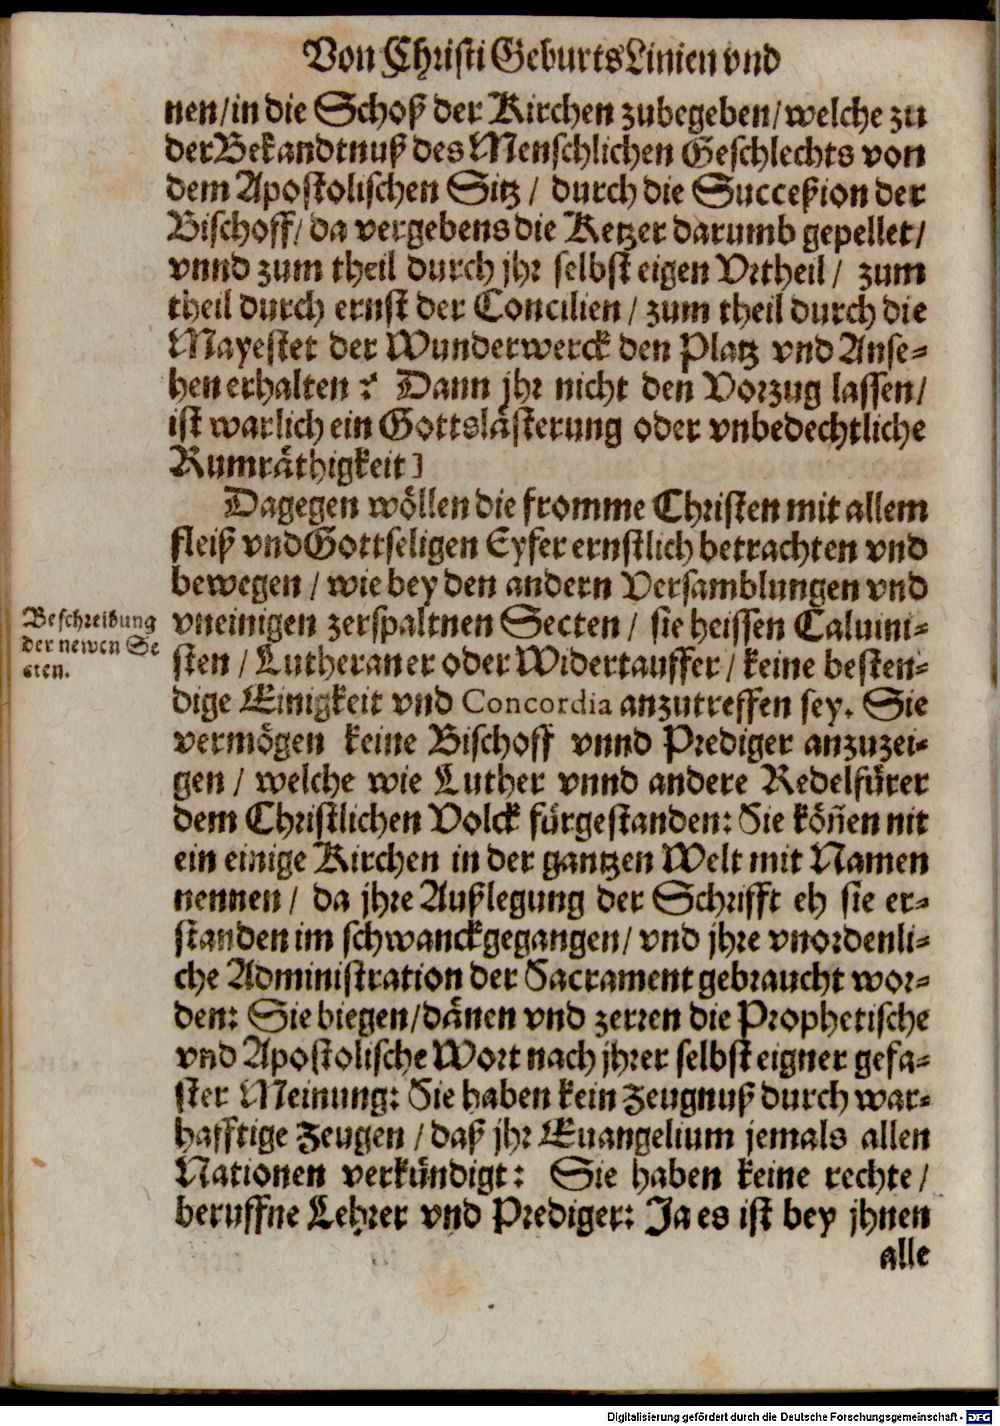 Von Christi Geburts Linien vnd
nen/in die Schoß der Kirchen zubegeben/welche zu
der Bekandtnuß des Menschlichen Geschlechts von
dem Apostolischen Sitz / durch die Succeßion der
Bischoff/ da vergebens die Ketzer darumb gepellet/
vnnd zum theil durch jhr selbst eigen Vrtheil / zum
theil durch ernst der Concilien / zum theil durch die
Mayestet der Wunderwerck den Platz vnd Anse-
hen erhalten? Dann jhr nicht den Vorzug lassen/
ist warlich ein Gottslästerung oder vnbedechtliche
Rumräthigkeit]
Dagegen wöllen die fromme Christen mit allem
fleiß vnd Gottseligen Eyfer ernstlich betrachten vnd
bewegen / wie bey den andern Versamblungen vnd
vneinigen zerspaltnen Secten / sie heissen Caluini-
sten / Lutheraner oder Widertauffer / keine besten-
dige Einigkeit vnd Concordia anzutreffen sey. Sie
vermögen keine Bischoff vnnd Prediger anzuzei-
gen / welche wie Luther vnnd andere Redelfürer
dem Christlichen Volck fürgestanden: Sie köñen nit
ein einige Kirchen in der gantzen Welt mit Namen
nennen / da jhre Außlegung der Schrifft eh sie er-
standen im schwanck gegangen/ vnd jhre vnordenli-
che Administration der Sacrament gebraucht wor-
den: Sie biegen/dänen vnd zerren die Prophetische
vnd Apostolische Wort nach jhrer selbst eigner gefa-
ster Meinung: Sie haben kein Zeugnuß durch war-
hafftige Zeugen / daß jhr Euangelium jemals allen
Nationen verkündigt: Sie haben keine rechte/
beruffne Lehrer vnd Prediger: Ja es ist bey jhnen
alle
Beschreibung
der newen Se
cten.
Digitalisierung gefördert durch die Deutsche Forschungsgemeinschaft - DFG